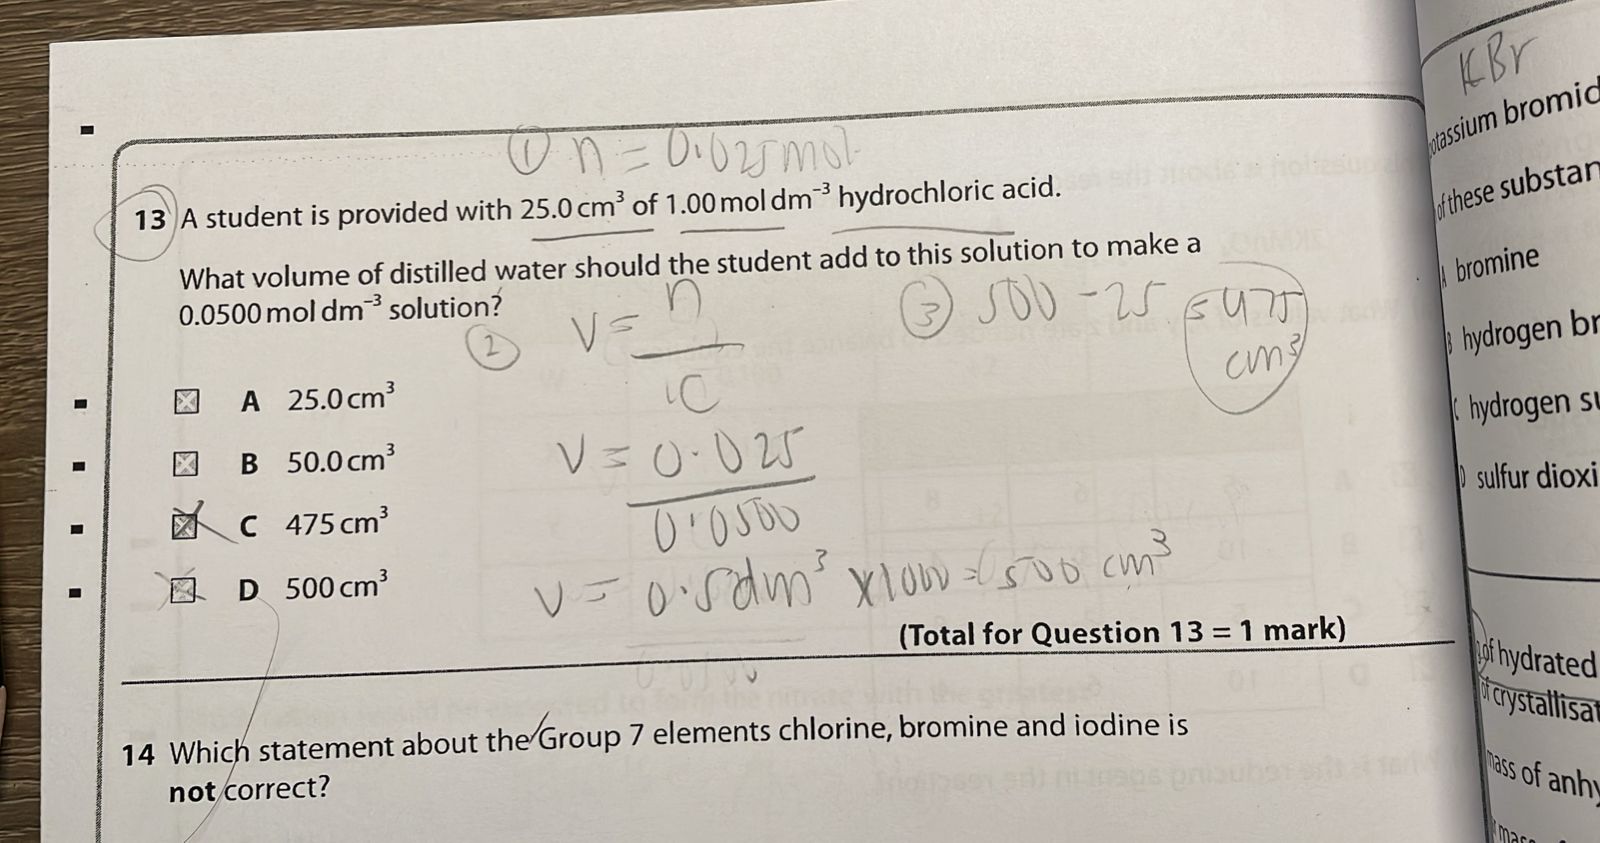 KBr
① n = 0.025 mol
13 A student is provided with 25.0 cm³ of 1.00 mol dm⁻³ hydrochloric acid.
What volume of distilled water should the student add to this solution to make a
0.0500 mol dm⁻³ solution?
② V = n
C
③ 500 - 25 = 475
cm³
A 25.0 cm³
B 50.0 cm³
C 475 cm³
D 500 cm³
V = 0.025
0.0500
V = 0.5dm³ x1000 = 500 cm³
(Total for Question 13 = 1 mark)
14 Which statement about the Group 7 elements chlorine, bromine and iodine is
not correct?
otassium bromid
of these substan
bromine
B hydrogen br
hydrogen su
D sulfur dioxi
of hydrated
of crystallisat
mass of anhy